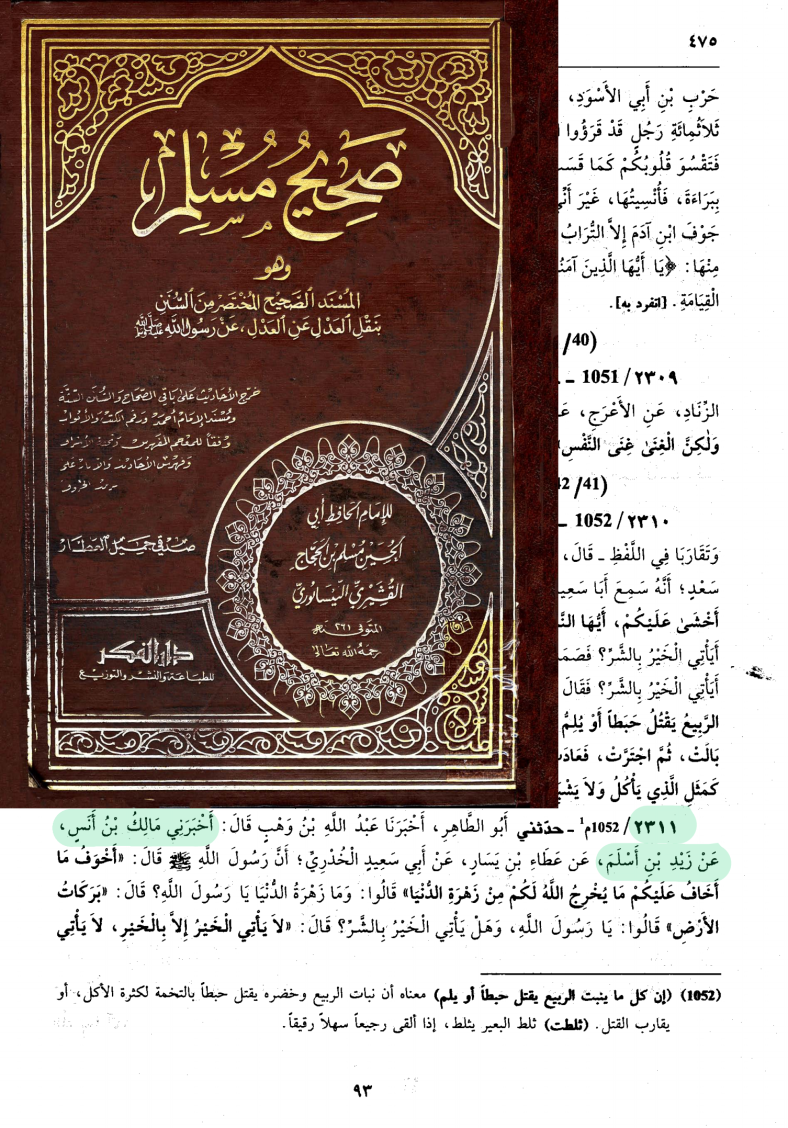 صَحِيحُ مُسْلِمِ
وهو
المُسْنَد الصَّحِيح المُخْتَصَر مِنَ السُّنَنِ
بِنَقْلِ العَدْلِ عَنِ العَدْلِ ، عَنْ رَسُولِ اللَّهِ ﷺ
خرج الأحاديث على باقي الصحاح والسنن الستة
ومسند الإمام أحمد ورقم الكتب والأبواب
وفقاً للمعجم المفهرس وتحفة الأشراف
للإمام الحافظ أبي
الحسين مسلم بن الحجاج
القشيري النيسابوري
المتوفى ٢٦١ هـ
رحمه الله تعالى
صدقي جميل العطار
دار الفكر
للطباعة والنشر والتوزيع
٤٧٥
حَرْبِ بْنِ أَبِي الأَسْوَدِ،
ثَلاَثُمِائَةِ رَجُلٍ قَدْ قَرَؤُوا
فَتَقْسُوَ قُلُوبُكُمْ كَمَا
بِبَرَاءَةَ، فَأُنْسِيتُهَا، غَيْرَ
جَوْفَ ابْنِ آدَمَ إِلاَّ التُّرَابُ
مِنْهَا: ﴿يَا أَيُّهَا الَّذِينَ
القِيَامَةِ. [انفرد به].
(40/
٢٣٠٩/ 1051 ـ
الزِّنَادِ، عَنِ الأَعْرَجِ،
وَلٰكِنَّ الْغِنَىٰ غِنَى النَّفْسِ
(41/
٢٣١٠/ 1052 ـ
وَتَقَارَبَا فِي اللَّفْظِ ـ قَالَ،
سَعْدٍ؛ أَنَّهُ سَمِعَ أَبَا
أَخْشَىٰ عَلَيْكُمْ، أَيُّهَا
أَيَأْتِي الْخَيْرُ بِالشَّرِّ؟
أَيَأْتِي الْخَيْرُ بِالشَّرِّ؟ فَقَالَ
الرَّبِيعُ يَقْتُلُ حَبَطاً أَوْ يُلِمُّ
بَالَتْ، ثُمَّ اجْتَرَّتْ،
كَمَثَلِ الَّذِي يَأْكُلُ وَلاَ
٢٣١١/ 1052م¹ ـ حدّثني أَبُو الطَّاهِرِ، أَخْبَرَنَا عَبْدُ اللَّهِ بْنُ وَهْبٍ قَالَ: أَخْبَرَنِي مَالِكُ بْنُ أَنَسٍ،
عَنْ زَيْدِ بْنِ أَسْلَمَ، عَنِ عَطَاءِ بْنِ يَسَارٍ، عَنْ أَبِي سَعِيدٍ الْخُدْرِيِّ؛ أَنَّ رَسُولَ اللَّهِ ﷺ قَالَ: «أَخْوَفُ مَا
أَخَافُ عَلَيْكُمْ مَا يُخْرِجُ اللَّهُ لَكُمْ مِنْ زَهْرَةِ الدُّنْيَا» قَالُوا: وَمَا زَهْرَةُ الدُّنْيَا يَا رَسُولَ اللَّهِ؟ قَالَ: «بَرَكَاتُ
الأَرْضِ» قَالُوا: يَا رَسُولَ اللَّهِ، وَهَلْ يَأْتِي الْخَيْرُ بِالشَّرِّ؟ قَالَ: «لاَ يَأْتِي الْخَيْرُ إِلاَّ بِالْخَيْرِ، لاَ يَأْتِي
(1052) (إن كل ما ينبت الربيع يقتل حبطاً أو يلم) معناه أن نبات الربيع وخضره يقتل حبطاً بالتخمة لكثرة الأكل، أو
يقارب القتل. (ثلطت) ثلط البعير يثلط، إذا ألقى رجيعاً سهلاً رقيقاً.
٩٣